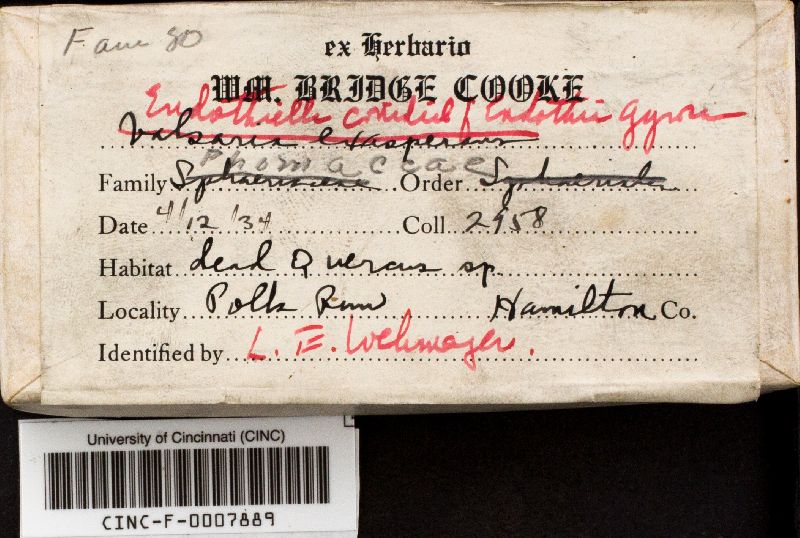 Fam 80
ex Herbario
WM. BRIDGE COOKE
Endothiella conidial / Endothia gyrosa
Valsaria exasperans
Phomaceae
Family Sphaeriaceae Order Sphaeriales
Date 4/12/34 Coll. 2958
Habitat dead Quercus sp.
Locality Polk Run Hamilton Co.
Identified by L. E. Wehmeyer.
University of Cincinnati (CINC)
CINC-F-0007889